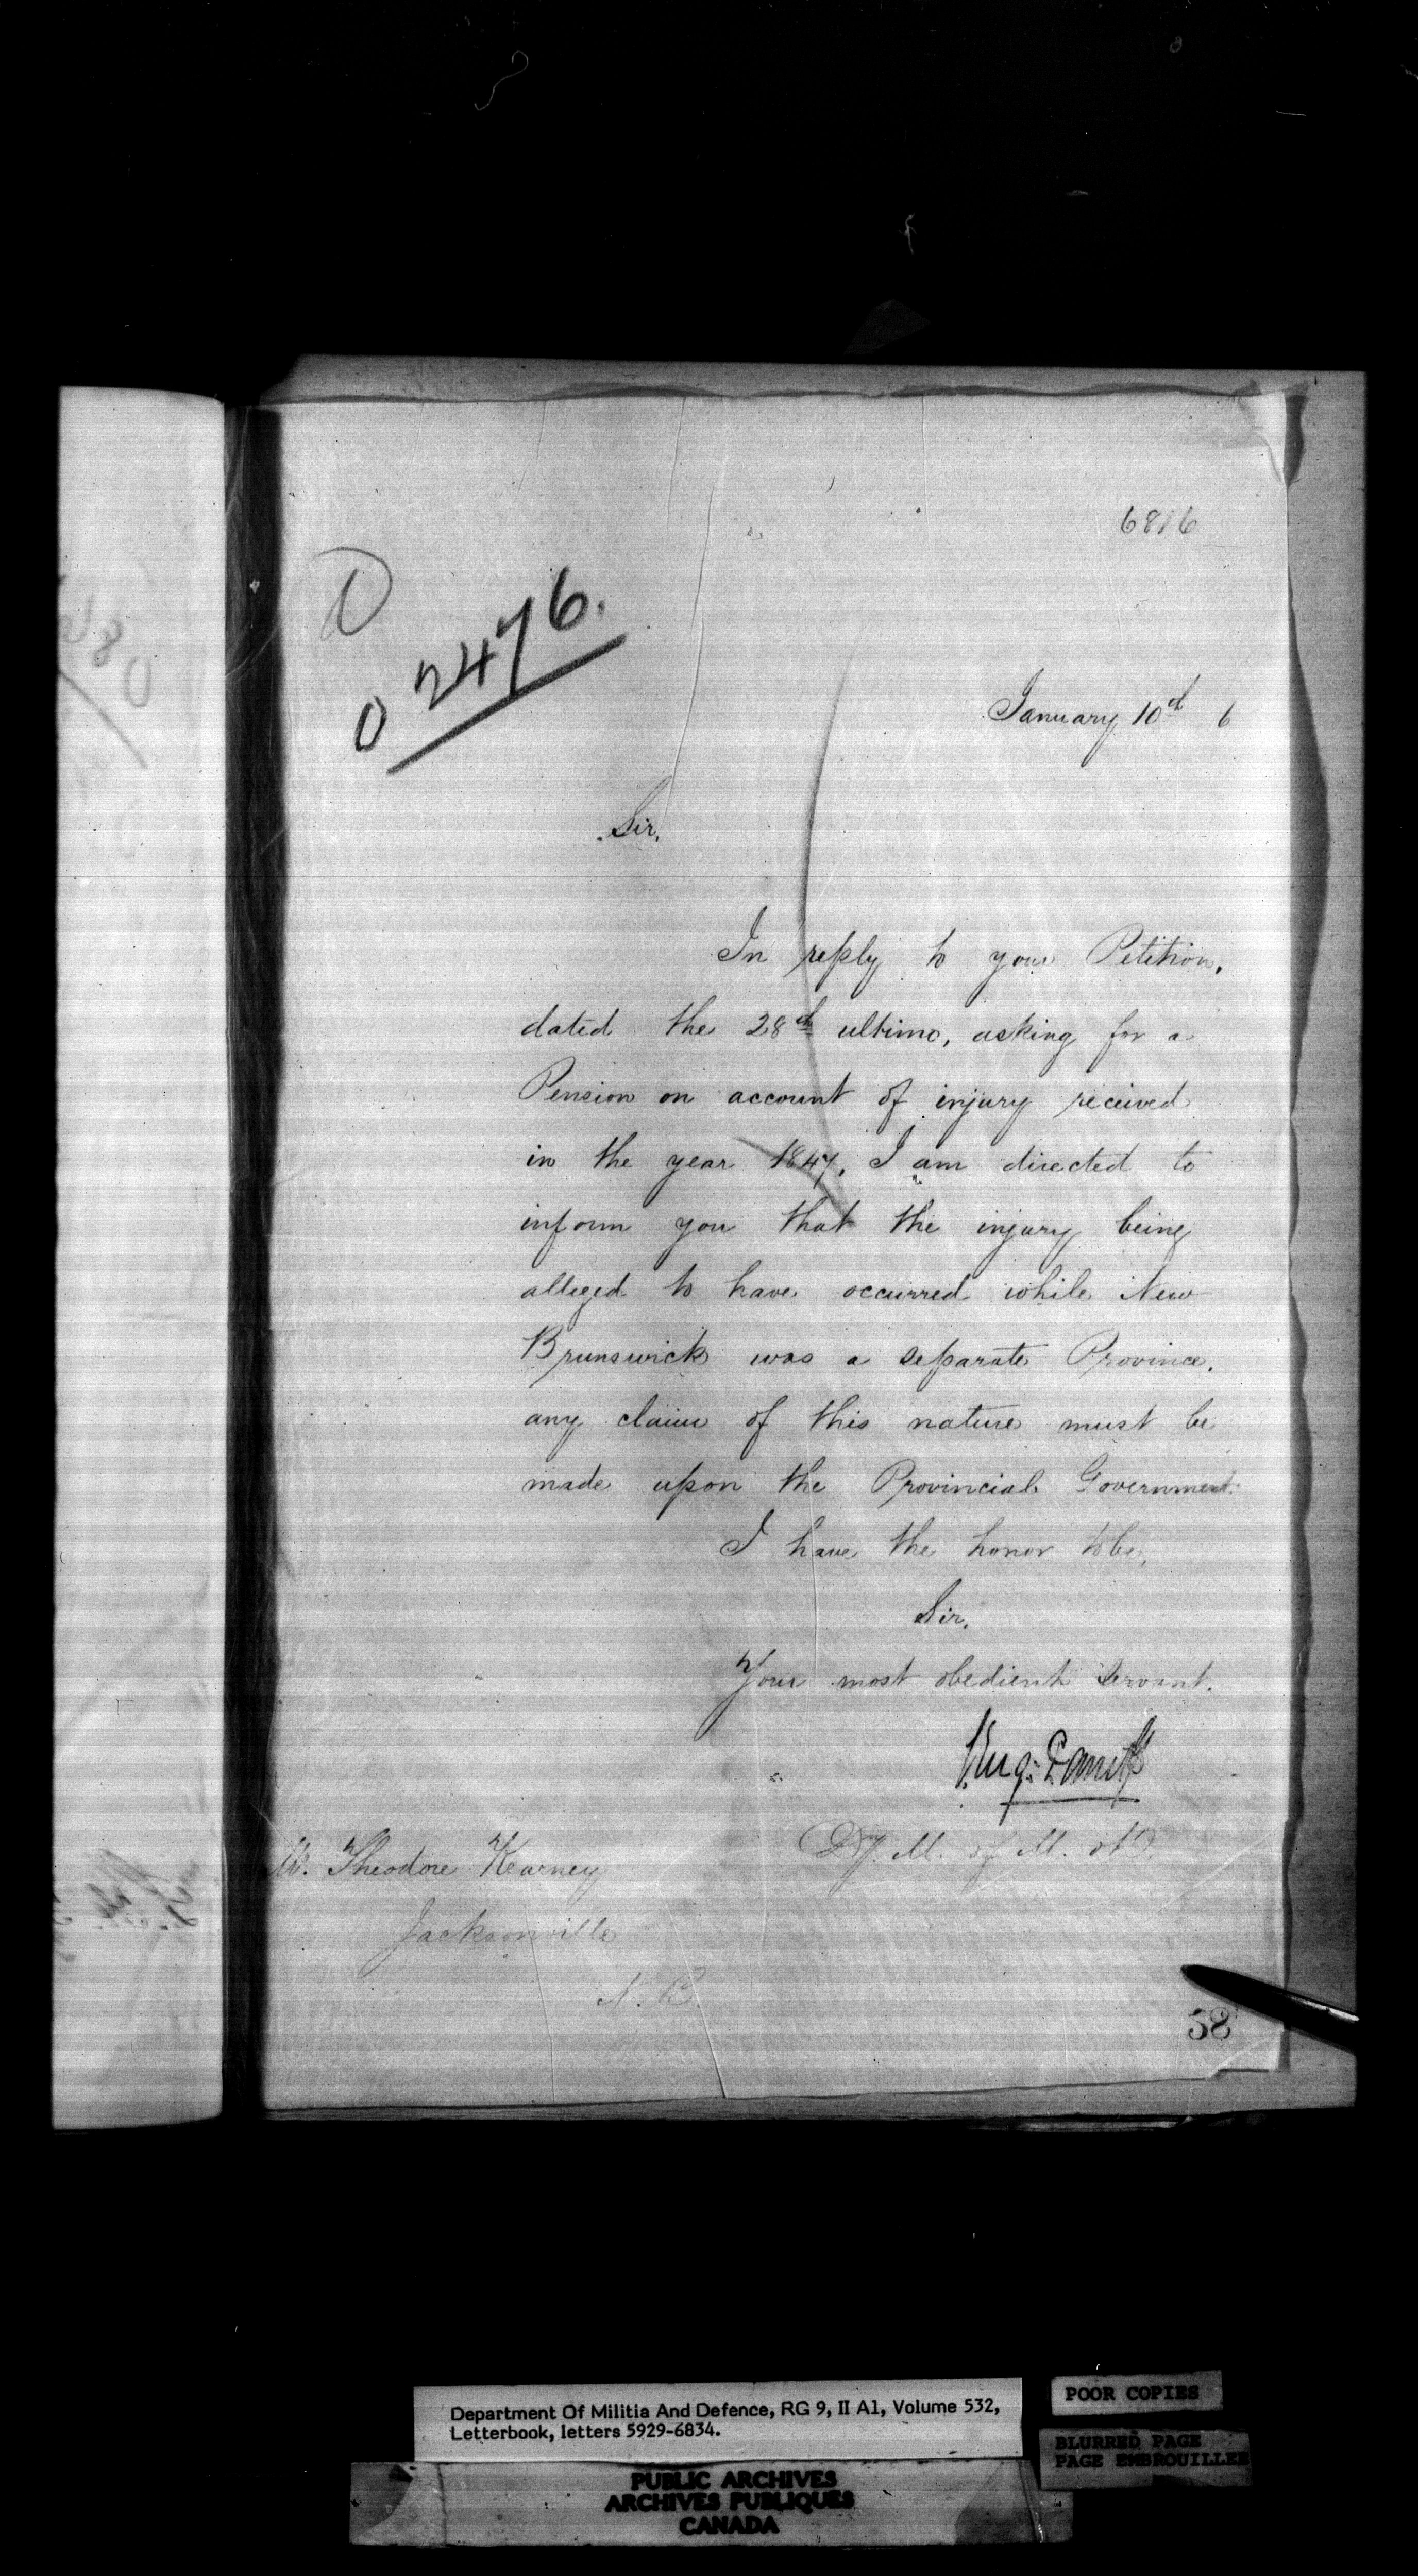 6816
0 2476.
January 10th 6
Sir,
In reply to your Petition,
dated the 28th ultimo, asking for a
Pension on account of injury received
in the year 1847, I am directed to
inform you that the injury being
alleged to have occurred while New
Brunswick was a separate Province,
any claim of this nature must be
made upon the Provincial Government.
I have the honor to be,
Sir,
Your most obedient Servant.
Dy. M. of M. & D.
Mr. Theodore Kearney
Jacksonville
N. B.
58
Department Of Militia And Defence, RG 9, II A1, Volume 532,
Letterbook, letters 5929-6834.
POOR COPIES
BLURRED PAGE
PAGE EMBROUILLEE
PUBLIC ARCHIVES
ARCHIVES PUBLIQUES
CANADA